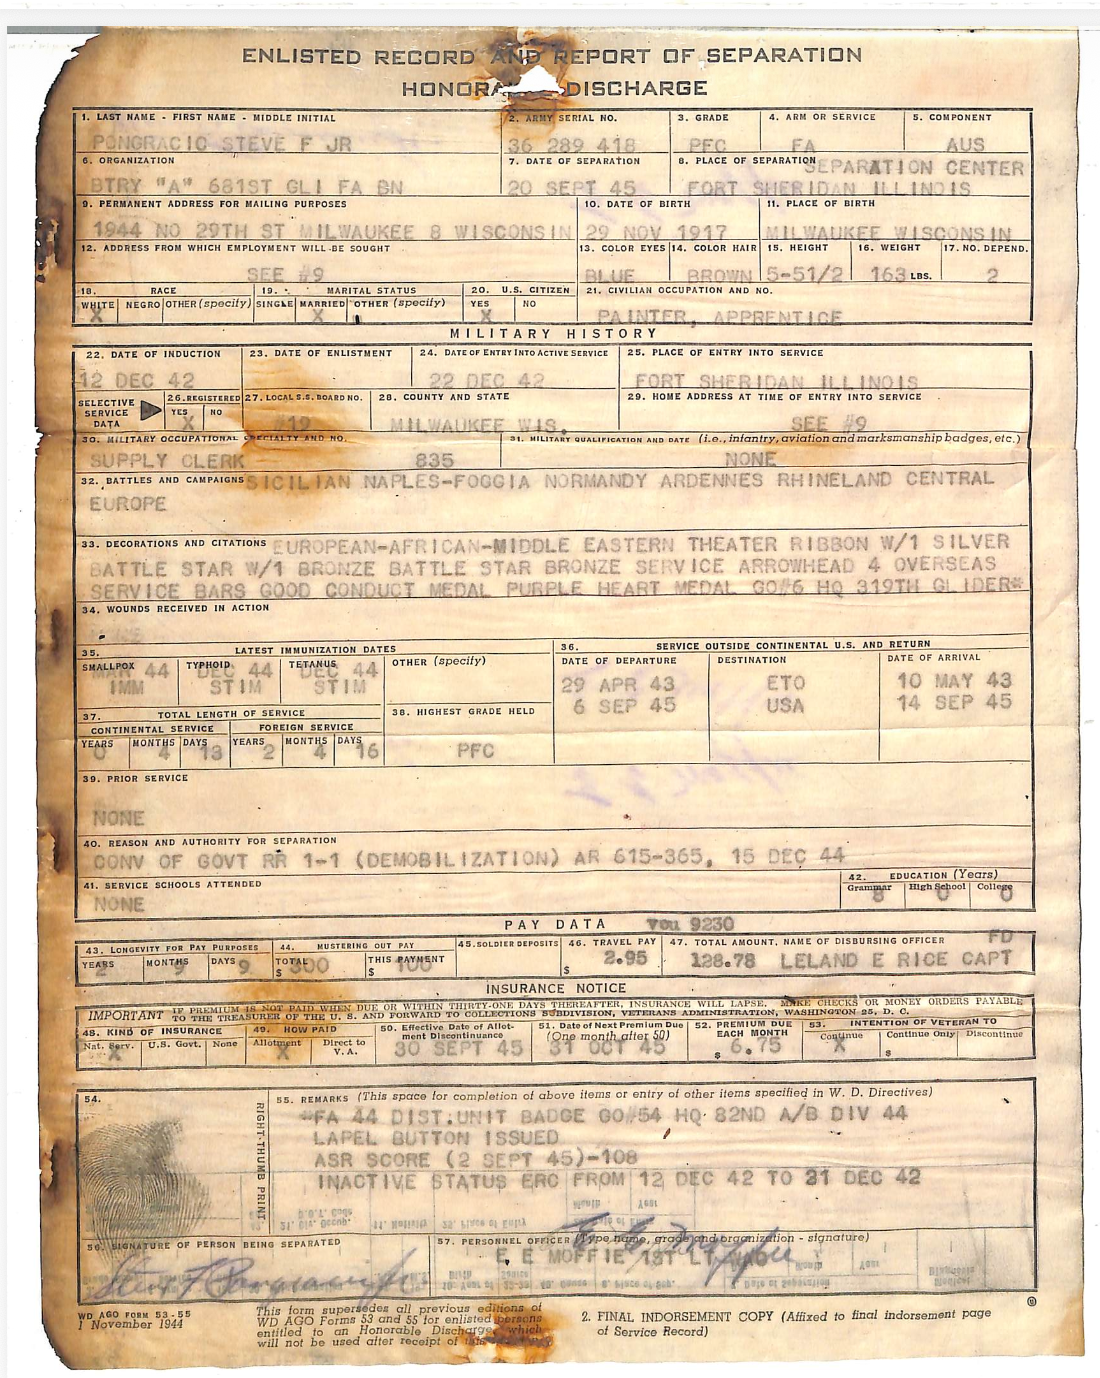 ENLISTED RECORD AND REPORT OF SEPARATION
HONORA DISCHARGE
1. LAST NAME - FIRST NAME - MIDDLE INITIAL 2. ARMY SERIAL NO. 3. GRADE 4. ARM OR SERVICE 5. COMPONENT
PONGRACIC STEVE F JR 36 289 418 PFC FA AUS
6. ORGANIZATION 7. DATE OF SEPARATION 8. PLACE OF SEPARATION SEPARATION CENTER
BTRY "A" 681ST GLI FA BN 20 SEPT 45 FORT SHERIDAN ILLINOIS
9. PERMANENT ADDRESS FOR MAILING PURPOSES 10. DATE OF BIRTH 11. PLACE OF BIRTH
1944 NO 29TH ST MILWAUKEE 8 WISCONSIN 29 NOV 1917 MILWAUKEE WISCONSIN
12. ADDRESS FROM WHICH EMPLOYMENT WILL BE SOUGHT 13. COLOR EYES 14. COLOR HAIR 15. HEIGHT 16. WEIGHT 17. NO. DEPEND.
SEE #9 BLUE BROWN 5-51/2 163 LBS. 2
18. RACE 19. MARITAL STATUS 20. U.S. CITIZEN 21. CIVILIAN OCCUPATION AND NO.
WHITE NEGRO OTHER (specify) SINGLE MARRIED OTHER (specify) YES NO
X X X PAINTER, APPRENTICE
MILITARY HISTORY
22. DATE OF INDUCTION 23. DATE OF ENLISTMENT 24. DATE OF ENTRY INTO ACTIVE SERVICE 25. PLACE OF ENTRY INTO SERVICE
12 DEC 42 22 DEC 42 FORT SHERIDAN ILLINOIS
SELECTIVE SERVICE DATA 26. REGISTERED 27. LOCAL S.S. BOARD NO. 28. COUNTY AND STATE 29. HOME ADDRESS AT TIME OF ENTRY INTO SERVICE
YES NO
X #19 MILWAUKEE WIS. SEE #9
30. MILITARY OCCUPATIONAL SPECIALTY AND NO. 31. MILITARY QUALIFICATION AND DATE (i.e., infantry, aviation and marksmanship badges, etc.)
SUPPLY CLERK 835 NONE
32. BATTLES AND CAMPAIGNS SICILIAN NAPLES-FOGGIA NORMANDY ARDENNES RHINELAND CENTRAL
EUROPE
33. DECORATIONS AND CITATIONS EUROPEAN-AFRICAN-MIDDLE EASTERN THEATER RIBBON W/1 SILVER
BATTLE STAR W/1 BRONZE BATTLE STAR BRONZE SERVICE ARROWHEAD 4 OVERSEAS
SERVICE BARS GOOD CONDUCT MEDAL PURPLE HEART MEDAL GO#6 HQ 319TH GLIDER*
34. WOUNDS RECEIVED IN ACTION
35. LATEST IMMUNIZATION DATES 36. SERVICE OUTSIDE CONTINENTAL U.S. AND RETURN
SMALLPOX TYPHOID TETANUS OTHER (specify) DATE OF DEPARTURE DESTINATION DATE OF ARRIVAL
MAR 44 DEC 44 DEC 44
IMM STIM STIM 29 APR 43 ETO 10 MAY 43
6 SEP 45 USA 14 SEP 45
37. TOTAL LENGTH OF SERVICE 38. HIGHEST GRADE HELD
CONTINENTAL SERVICE FOREIGN SERVICE
YEARS MONTHS DAYS YEARS MONTHS DAYS
0 4 13 2 4 16 PFC
39. PRIOR SERVICE
NONE
40. REASON AND AUTHORITY FOR SEPARATION
CONV OF GOVT RR 1-1 (DEMOBILIZATION) AR 615-365, 15 DEC 44
41. SERVICE SCHOOLS ATTENDED 42. EDUCATION (Years)
Grammar High School College
NONE 8 0 0
PAY DATA vou 9230
43. LONGEVITY FOR PAY PURPOSES 44. MUSTERING OUT PAY 45. SOLDIER DEPOSITS 46. TRAVEL PAY 47. TOTAL AMOUNT, NAME OF DISBURSING OFFICER FD
YEARS MONTHS DAYS TOTAL THIS PAYMENT
2 9 9 $ 300 $ 100 $ 2.95 128.78 LELAND E RICE CAPT
INSURANCE NOTICE
IMPORTANT IF PREMIUM IS NOT PAID WHEN DUE OR WITHIN THIRTY-ONE DAYS THEREAFTER, INSURANCE WILL LAPSE. MAKE CHECKS OR MONEY ORDERS PAYABLE
TO THE TREASURER OF THE U. S. AND FORWARD TO COLLECTIONS SUBDIVISION, VETERANS ADMINISTRATION, WASHINGTON 25, D. C.
48. KIND OF INSURANCE 49. HOW PAID 50. Effective Date of Allotment Discontinuance 51. Date of Next Premium Due (One month after 50) 52. PREMIUM DUE EACH MONTH 53. INTENTION OF VETERAN TO
Nat. Serv. U.S. Govt. None Allotment Direct to V. A. Continue Continue Only Discontinue
X X 30 SEPT 45 31 OCT 45 $ 6.75 X $
54. RIGHT THUMB PRINT
55. REMARKS (This space for completion of above items or entry of other items specified in W. D. Directives)
*FA 44 DIST.UNIT BADGE GO#54 HQ 82ND A/B DIV 44
LAPEL BUTTON ISSUED
ASR SCORE (2 SEPT 45)-108
INACTIVE STATUS ERC FROM 12 DEC 42 TO 21 DEC 42
56. SIGNATURE OF PERSON BEING SEPARATED 57. PERSONNEL OFFICER (Type name, grade and organization - signature)
E E MOFFIE 1ST LT WAC
WD AGO FORM 53-55
1 November 1944
This form supersedes all previous editions of
WD AGO Forms 53 and 55 for enlisted persons
entitled to an Honorable Discharge, which
will not be used after receipt of
2. FINAL INDORSEMENT COPY (Affixed to final indorsement page
of Service Record)